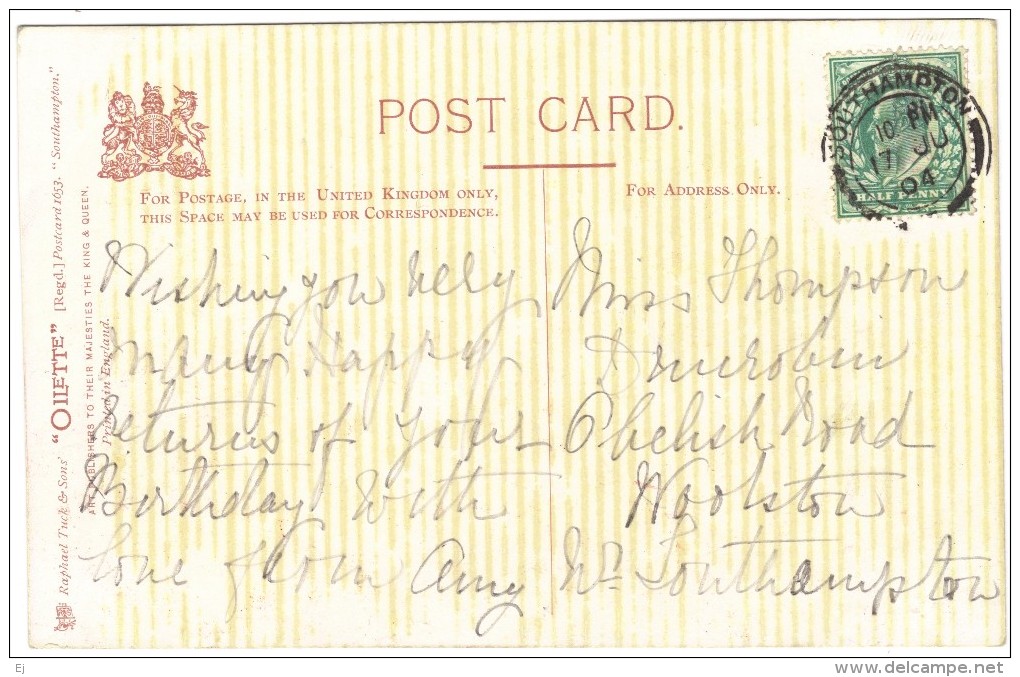 POST CARD.
FOR POSTAGE, IN THE UNITED KINGDOM ONLY,
THIS SPACE MAY BE USED FOR CORRESPONDENCE.
FOR ADDRESS ONLY.
SOUTHAMPTON
10 PM
17 JU
04
HALF PENNY
Raphael Tuck & Sons' "OILETTE" [Regd.] Postcard 1653. "Southampton."
ART PUBLISHERS TO THEIR MAJESTIES THE KING & QUEEN.
Printed in England.
Wishing you very
many Happy
Returns of your
Birthday with
love from Amy
Miss Thompson
Obelisk Road
Woolston
Nr Southampton
Ej
www.delcampe.net